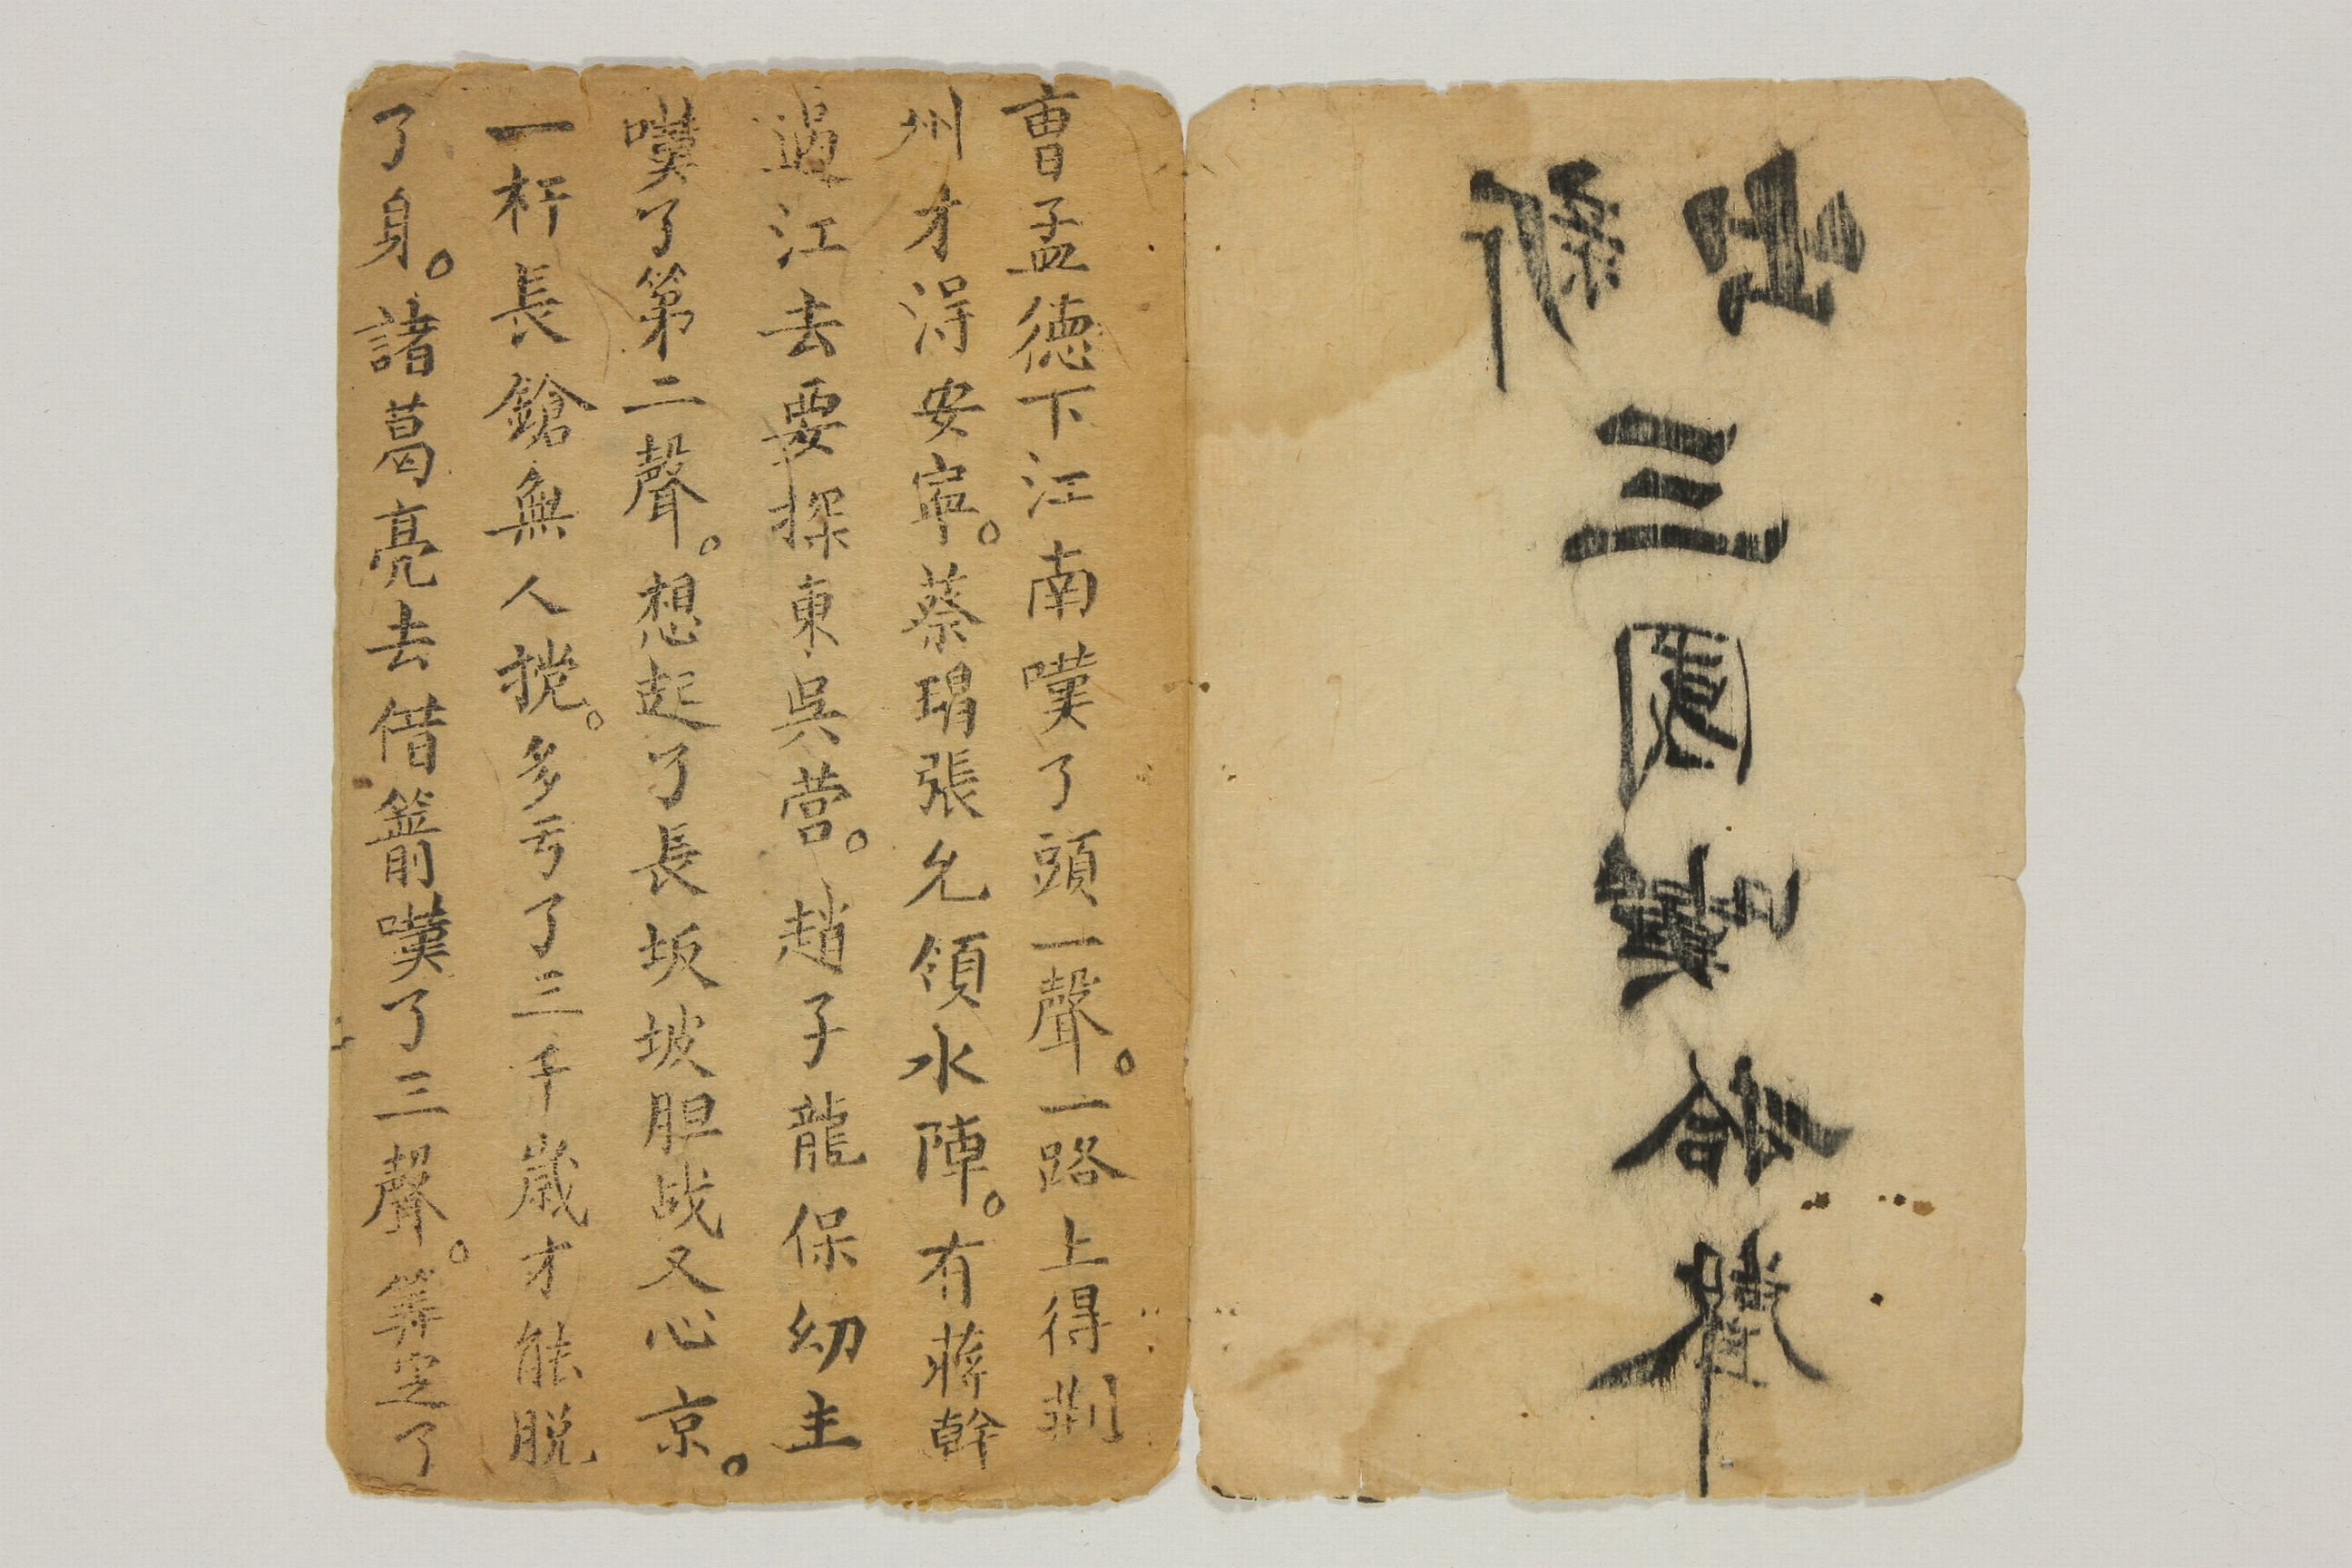 三國嘆
曹孟德下江南嘆了頭一聲。一路上得荆
州才得安寕。蔡瑁張允領水陣。有蒋幹
過江去要探東吳营。趙子龍保幼主
嘆了第二聲。想起了長坂坡胆战又心京。
一杆長鎗無人。多亏了三千歲才能脱
了身。諸葛亮去借箭嘆了三聲。筭定了